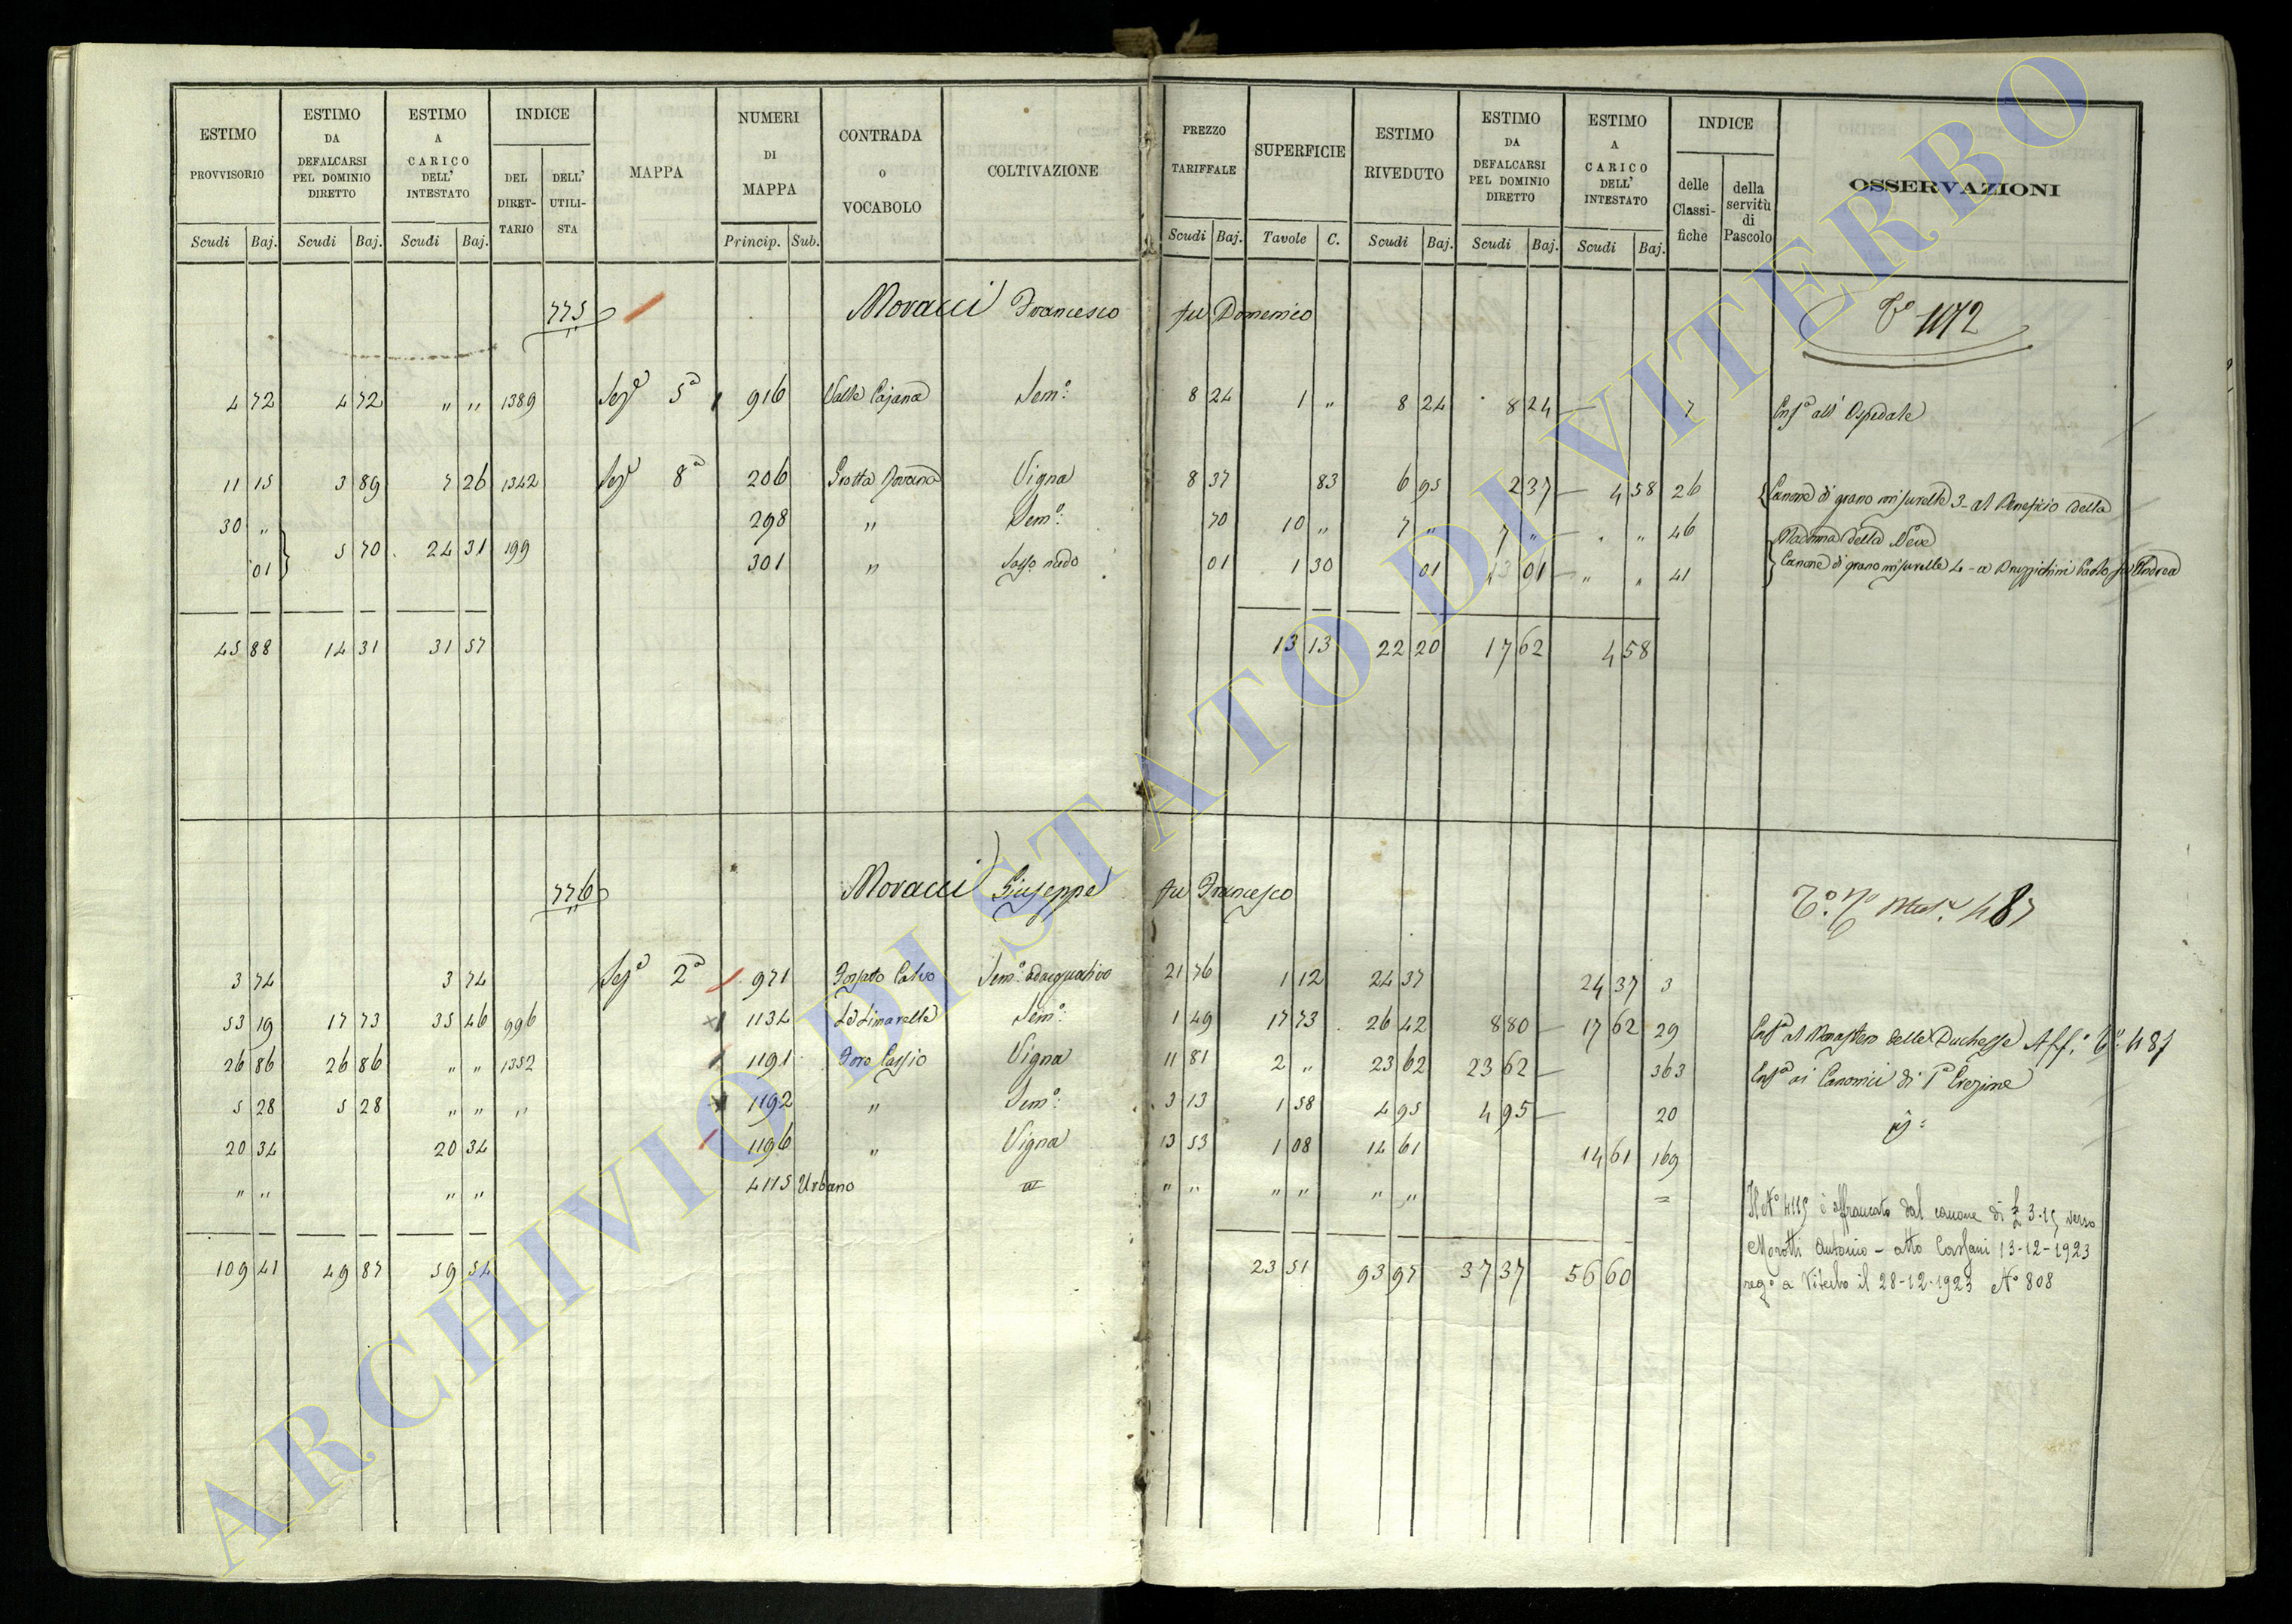 ESTIMO PROVVISORIO | ESTIMO DA DEFALCARSI PEL DOMINIO DIRETTO | ESTIMO A CARICO DELL' INTESTATO | INDICE | MAPPA | NUMERI DI MAPPA | CONTRADA O VOCABOLO | COLTIVAZIONE | PREZZO TARIFFALE | SUPERFICIE | ESTIMO RIVEDUTO | ESTIMO DA DEFALCARSI PEL DOMINIO DIRETTO | ESTIMO A CARICO DELL' INTESTATO | INDICE | OSSERVAZIONI
DEL DIRETTARIO | DELL' UTILISTA | delle Classifiche | della servitù di Pascolo
Scudi | Baj. | Scudi | Baj. | Scudi | Baj. | Princip. | Sub. | Scudi | Baj. | Tavole | C. | Scudi | Baj. | Scudi | Baj. | Scudi | Baj.
775 Moracci Francesco fu Domenico 1172
4 72 | 4 72 | " " | 1389 | Sez.e 5a | 916 | Valle Cajana | Sem.o: | 8 24 | 1 " | 8 24 | 8 24 | 7 | Enf.a all' Ospedale
11 15 | 3 89 | 7 26 | 1342 | Sez.e 8a | 206 | Grotta | Vigna | 8 37 | 83 | 6 95 | 2 37 | 4 58 | 26 | Canone di grano misurelle 3 - al Beneficio della
30 " | 298 | " | Sem.o: | 70 | 10 " | 7 " | 7 " | " " | 46 | Madonna della Neve
01 | 5 70 | 24 31 | 199 | 301 | " | Sasso nudo | 01 | 1 30 | 01 | 01 | " " | 41 | Canone di grano misurelle 4 - a Paolo fu Andrea
45 88 | 14 31 | 31 57 | 13 13 | 22 20 | 17 62 | 4 58
776 Moracci Giuseppe fu Francesco 487
3 74 | 3 74 | Sez.e 2a | 971 | Fossato Calvo | Sem.o adacquativo | 21 76 | 1 12 | 24 37 | 24 37 | 3
53 19 | 17 73 | 35 46 | 996 | 1134 | Le Limarelle | Sem.o: | 1 49 | 17 73 | 26 42 | 8 80 | 17 62 | 29 | Enf.a al Monastero delle Duchesse Aff.o 487
26 86 | 26 86 | " " | 1352 | 1191 | Foro Cassio | Vigna | 11 81 | 2 " | 23 62 | 23 62 | 363 | Enf.a ai Canonici di 1a Erezione
5 28 | 5 28 | " " | " | 1192 | " | Sem.o: | 3 13 | 1 58 | 4 95 | 4 95 | 20
20 34 | 20 34 | 1196 | " | Vigna | 13 53 | 1 08 | 14 61 | 14 61 | 169
" " | " " | 4115 | Urbano | " " | " " | " " | = | Il N° 4115 è affrancato dal canone di £ 3.15 verso
Morotti Antonio - atto 13-12-1923
reg.o a Viterbo il 28-12-1923 N° 808
109 41 | 49 87 | 59 54 | 23 51 | 93 97 | 37 37 | 56 60
ARCHIVIO DI STATO DI VITERBO